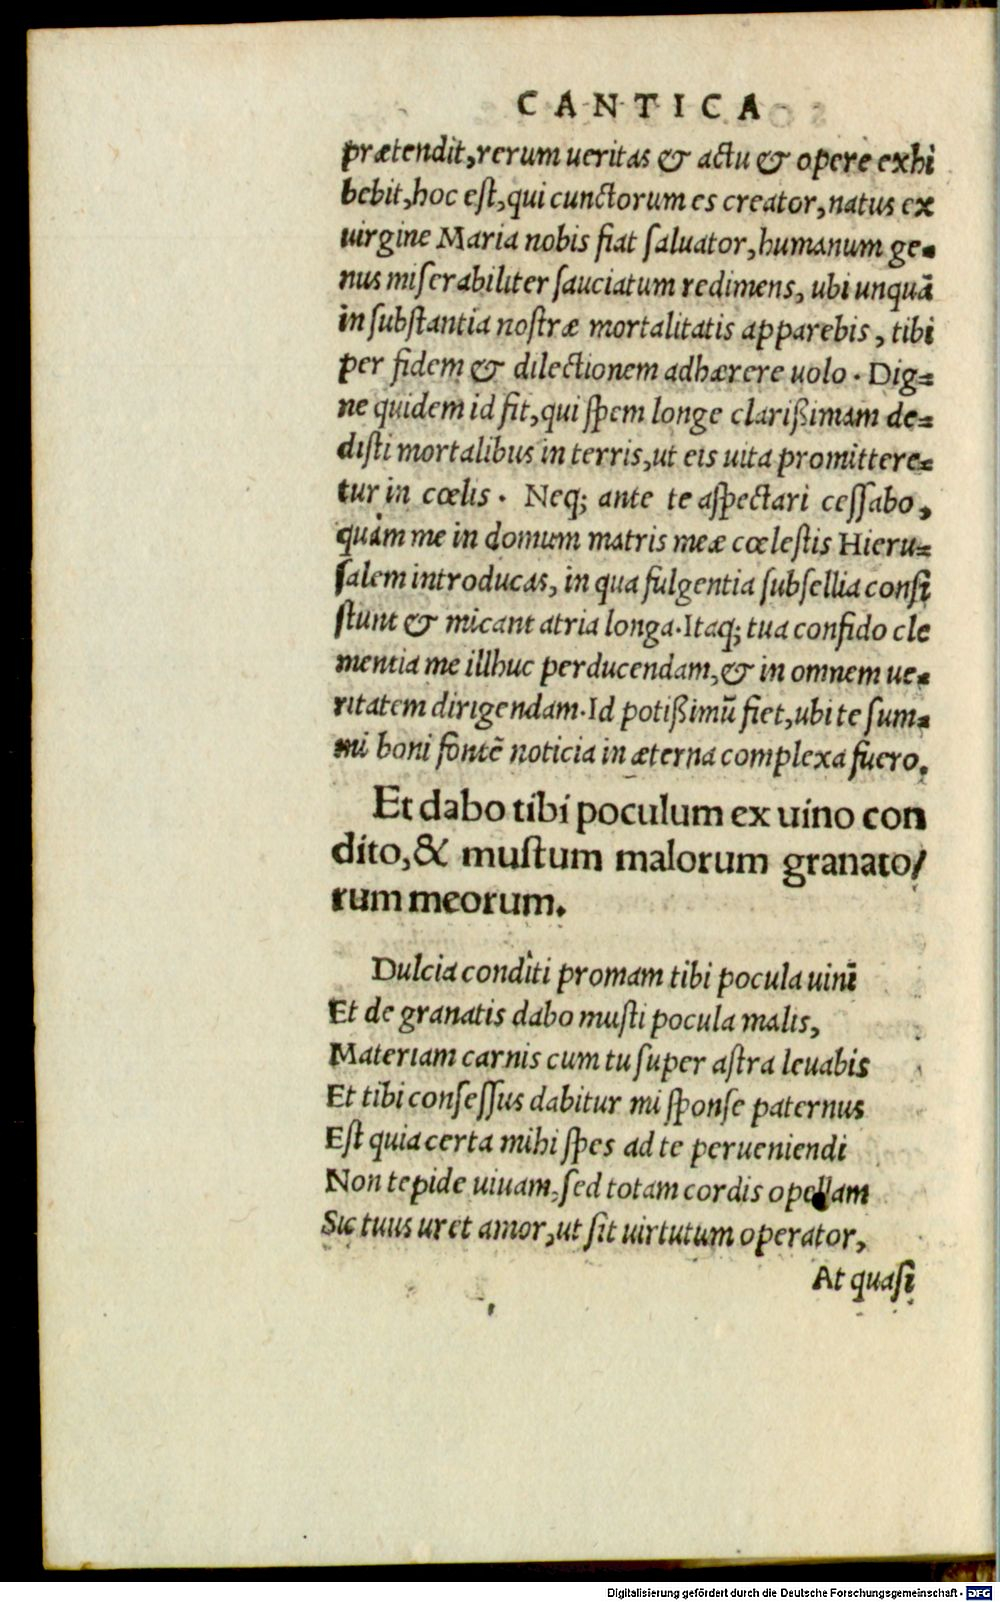 CANTICA
prætendit,rerum ueritas & actu & opere exhi
bebit,hoc est,qui cunctorum es creator,natus ex
uirgine Maria nobis fiat saluator,humanum ge-
nus miserabiliter sauciatum redimens, ubi unquã
in substantia nostræ mortalitatis apparebis, tibi
per fidem & dilectionem adhærere uolo. Dig=
ne quidem id fit,qui spem longe clarißimam de=
disti mortalibus in terris,ut eis uita promittere=
tur in cœlis. Neq; ante te aspectari cessabo,
quàm me in domum matris meæ cœlestis Hieru=
salem introducas, in qua fulgentia subsellia consi
stunt & micant atria longa.Itaq; tua confido cle
mentia me illhuc perducendam,& in omnem ue-
ritatem dirigendam.Id potißimũ fiet,ubi te sum-
mi boni fontẽ noticia in æterna complexa fuero.
Et dabo tibi poculum ex uino con
dito,& mustum malorum granato/
rum meorum.
Dulcia condîti promam tibi pocula uini
Et de granatis dabo musti pocula malis,
Materiam carnis cum tu super astra leuabis
Et tibi consessus dabitur mi sponse paternus
Est quia certa mihi spes ad te perueniendi
Non tepide uiuam,sed totam cordis opellam
Sic tuus uret amor,ut sit uirtutum operator,
At quasi
Digitalisierung gefördert durch die Deutsche Forschungsgemeinschaft - DFG